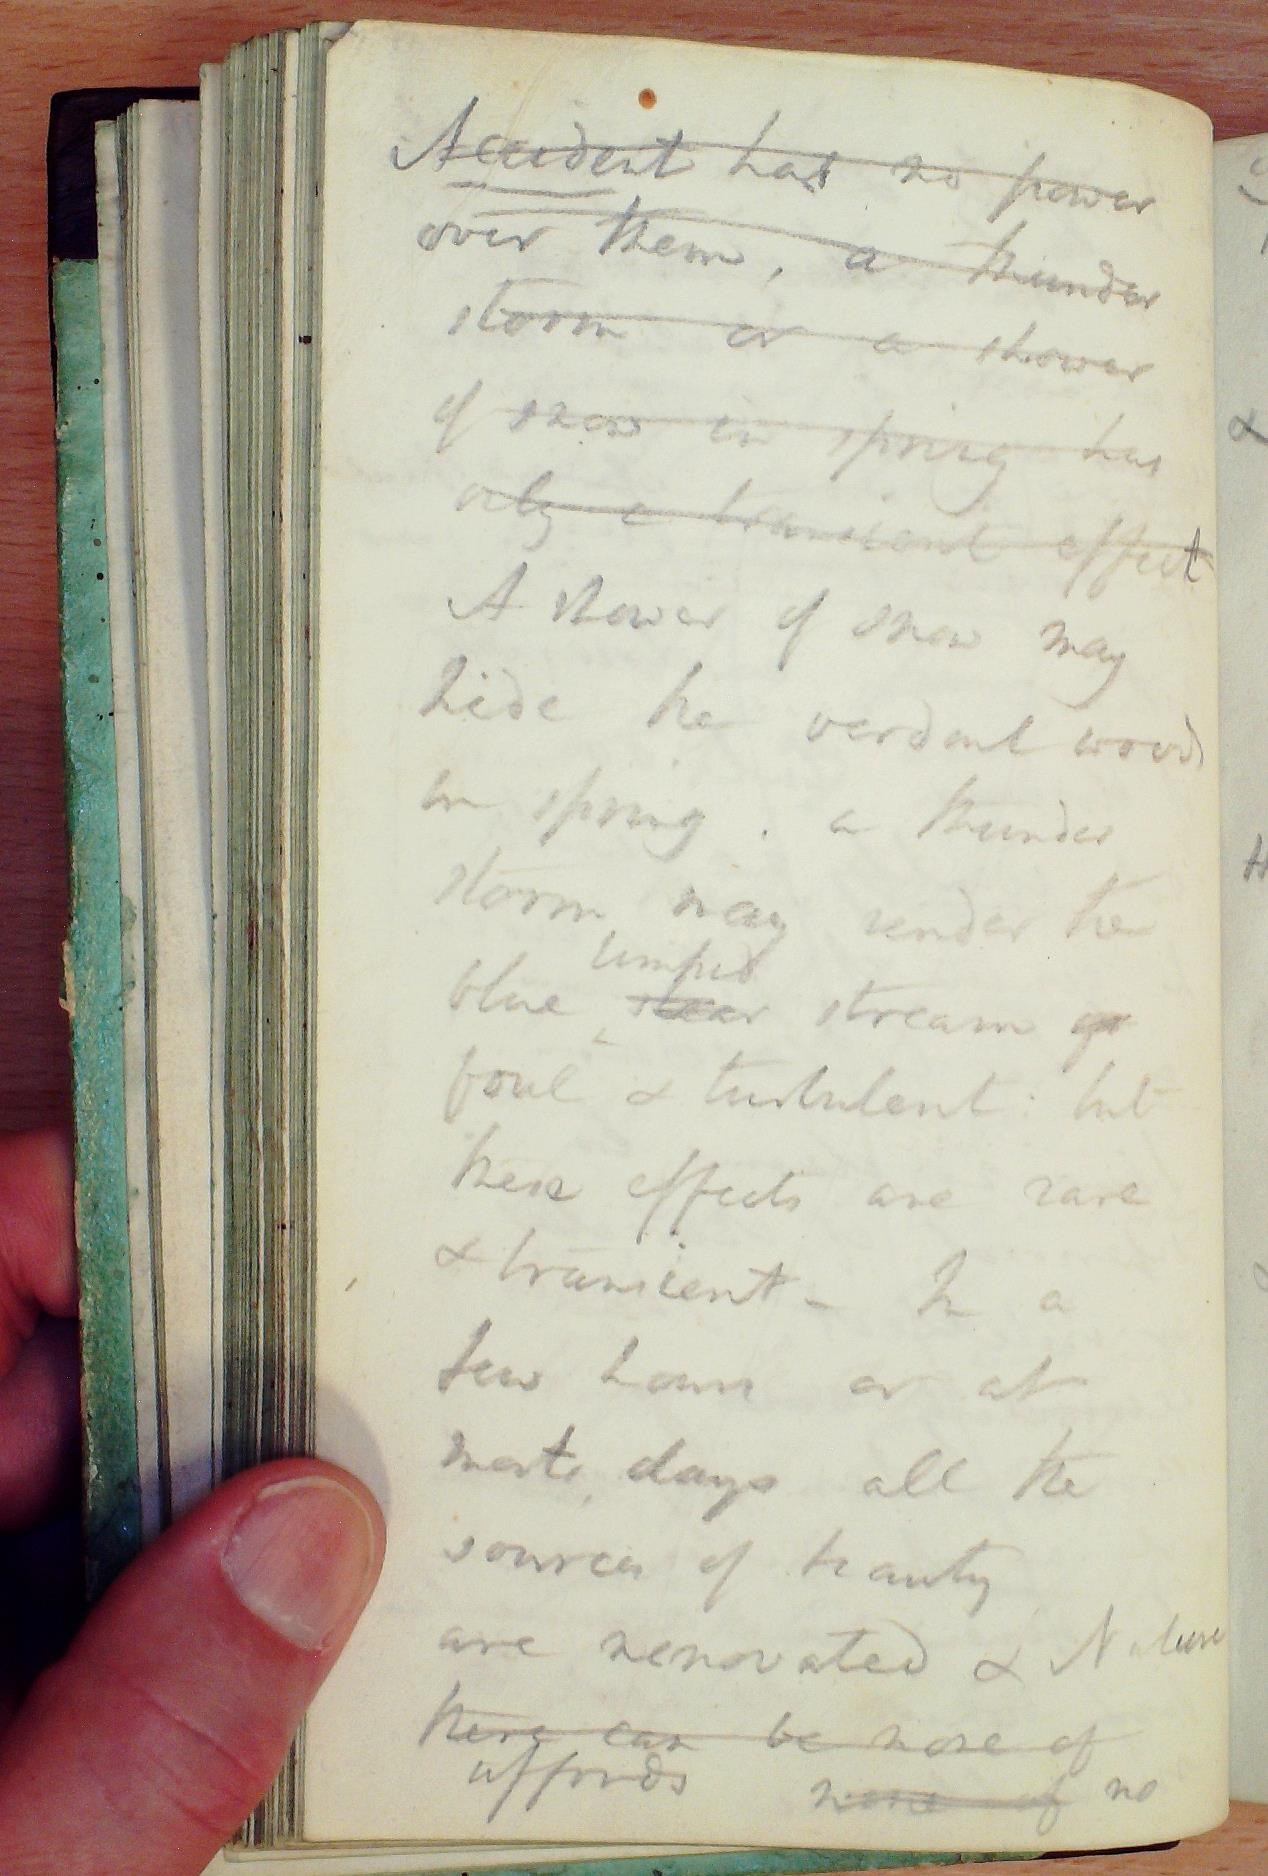 Accident has no power
over them, a thunder
storm or a shower
of snow in spring has
only a transient effect
A shower of snow may
hide the verdant wood
in spring. a thunder
storm may render the
limpid
blue clear stream
foul & turbulent: but
these effects are rare
& transient - In a
few hours or at
most, days all the
sources of beauty
are renovated & Nature
there can be none of
affords none of no